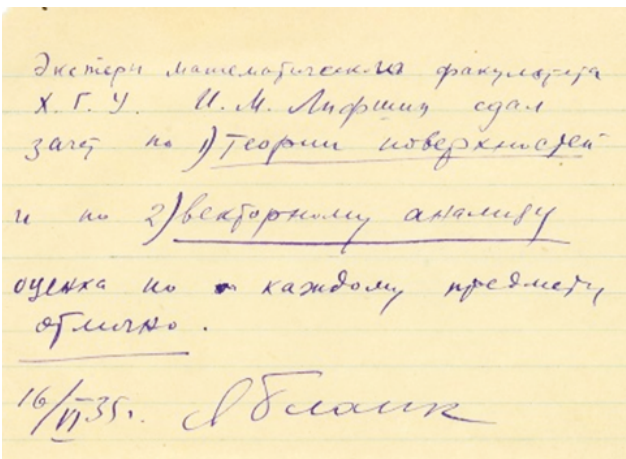 Экстерн математического факультета
Х.Г.У. И.М. Лифшиц сдал
зачет по 1) теории поверхностей
и по 2) векторному анализу
оценка по каждому предмету
отлично.
16/VI 35г. Я Бланк